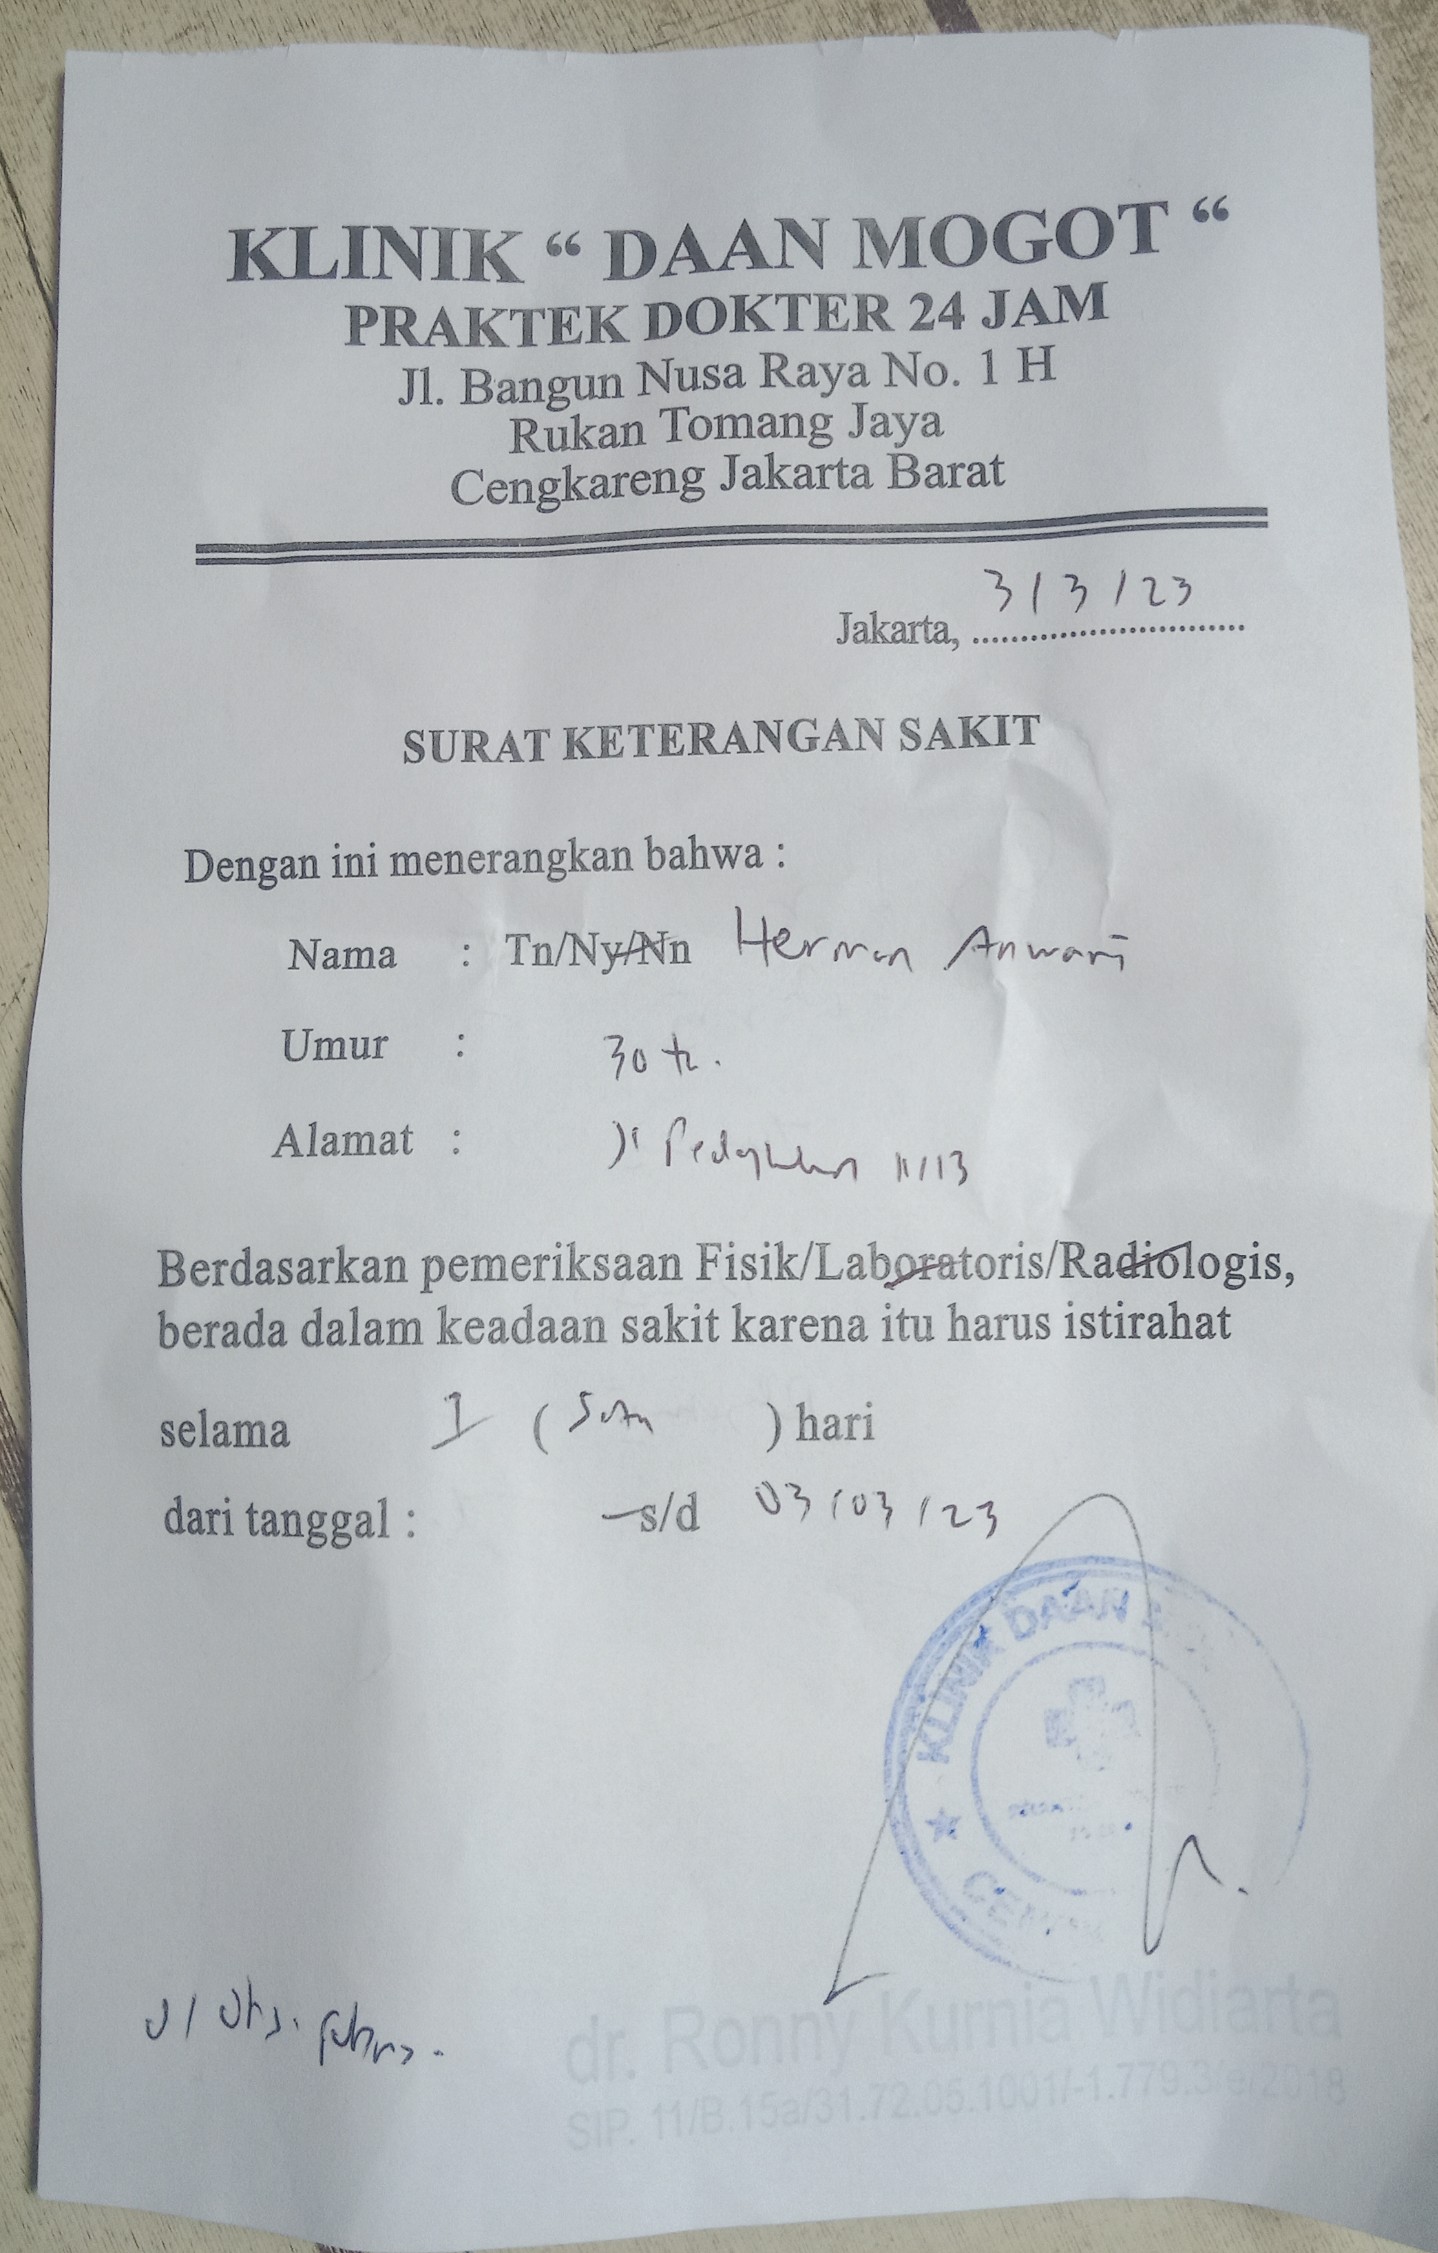 KLINIK “ DAAN MOGOT “
PRAKTEK DOKTER 24 JAM
Jl. Bangun Nusa Raya No. 1 H
Rukan Tomang Jaya
Cengkareng Jakarta Barat
Jakarta, 3/3/23
SURAT KETERANGAN SAKIT
Dengan ini menerangkan bahwa :
Nama : Tn/Ny/Nn Herman Anwari
Umur : 30 th.
Alamat : Jl 11/13
Berdasarkan pemeriksaan Fisik/Laboratoris/Radiologis,
berada dalam keadaan sakit karena itu harus istirahat
selama 1 ( Satu ) hari
dari tanggal : s/d 03/03/23
KLINIK DAAN
dr. Ronny Kurnia Widiarta
SIP. 11/B.15a/31.72.05.1001/-1.779.3/e/2018